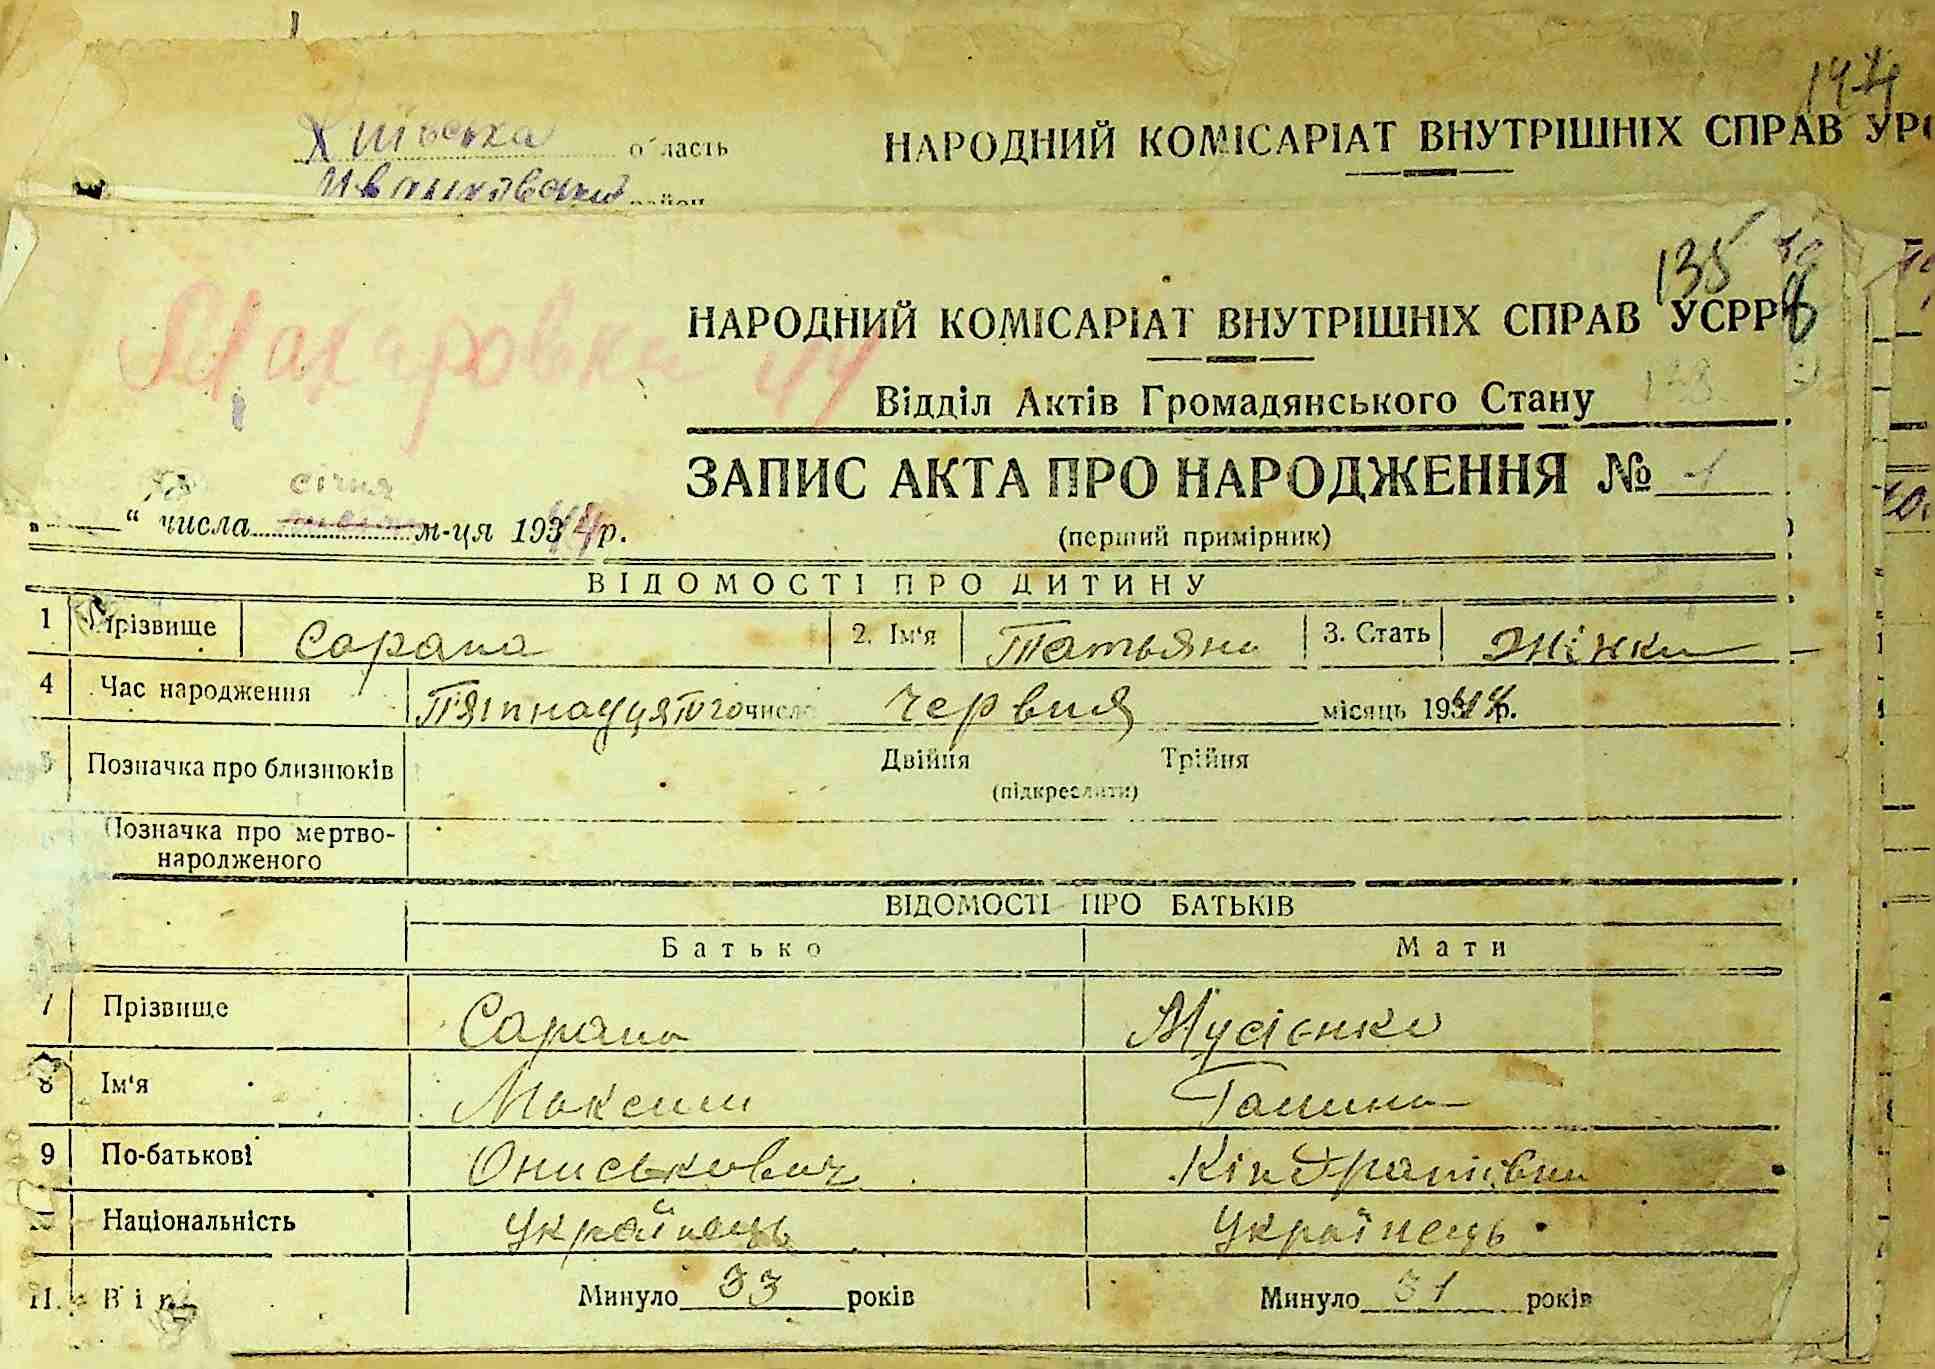 174
Київська область
Иванковский район
НАРОДНИЙ КОМІСАРІАТ ВНУТРІШНІХ СПРАВ УР
135
Макаровка 44
НАРОДНИЙ КОМІСАРІАТ ВНУТРІШНІХ СПРАВ УСРР
Відділ Актів Громадянського Стану
138
ЗАПИС АКТА ПРО НАРОДЖЕННЯ № 1
(перший примірник)
січня
„ “ числа м-ця 1944 р.
ВІДОМОСТІ ПРО ДИТИНУ
1 Прізвище Сарапа 2. Ім'я Татьяна 3. Стать Жінка
4 Час народження П'ятнадцятого числа червня місяць 1944 р.
5 Позначка про близнюків Двійня Трійня
(підкреслити)
Позначка про мертво-
народженого
ВІДОМОСТІ ПРО БАТЬКІВ
Батько Мати
7 Прізвище Сарапа Мусієнко
8 Ім'я Максим Ганна
9 По-батькові Ониськович Кіндратівна
Національність Українець Українець
11. Вік Минуло 33 років Минуло 31 років